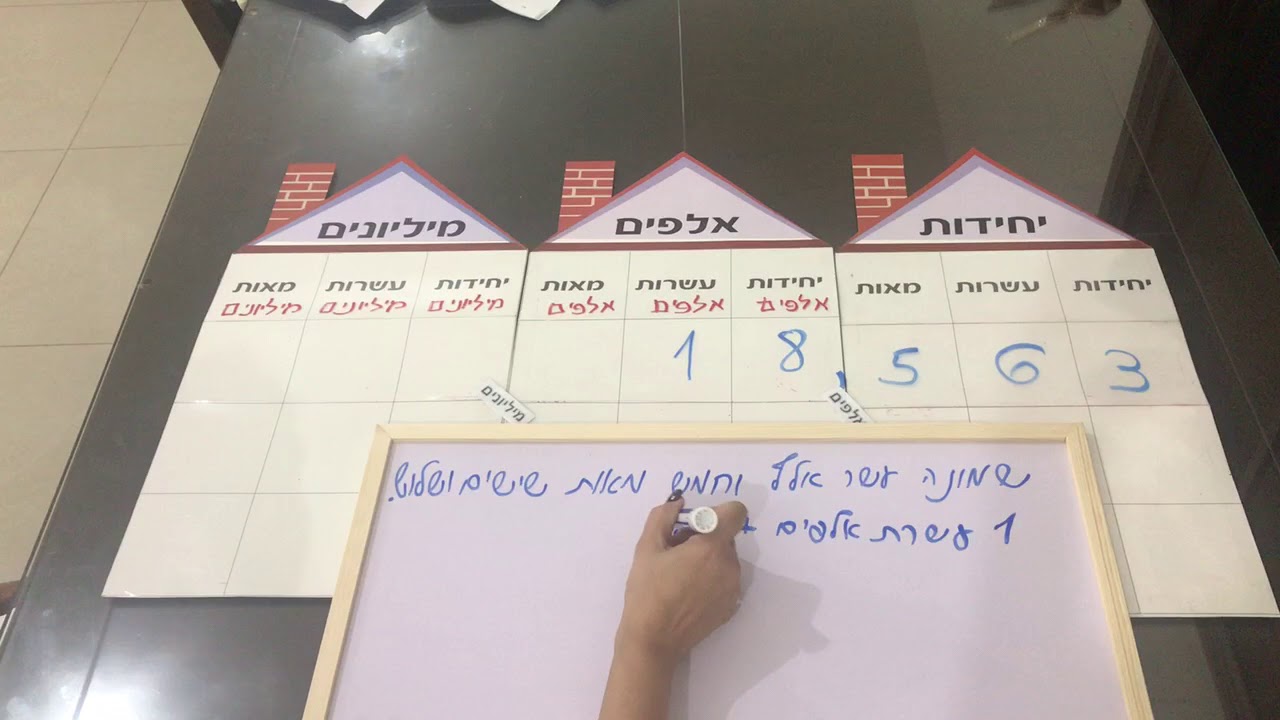 יחידות אלפים מיליונים
יחידות עשרות מאות יחידות עשרות מאות יחידות עשרות מאות
אלפים אלפים אלפים מיליונים מיליונים מיליונים
1 8 , 5 6 3
אלפים מיליונים
שמונה עשר אלף וחמש מאות שישים ושלוש.
1 עשרת אלפים +